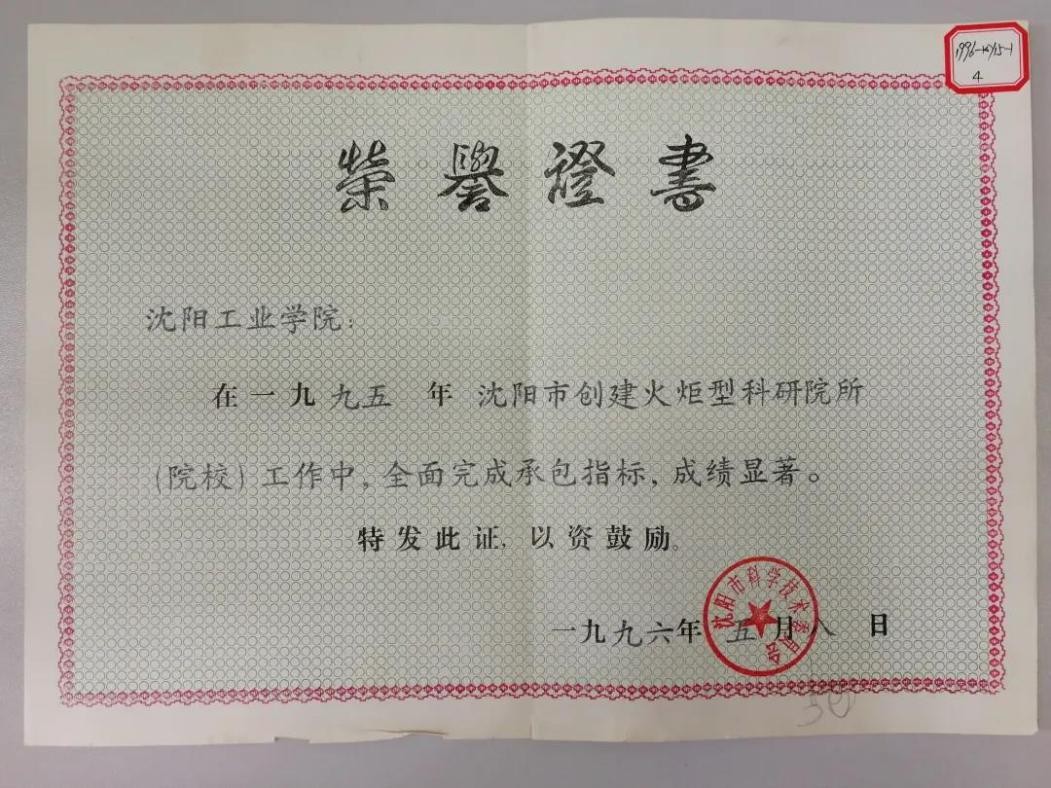 榮譽證書
沈阳工业学院:
在一九九五年 沈阳市创建火炬型科研院所
(院校)工作中,全面完成承包指标,成绩显著。
特发此证,以资鼓励。
一九九六年五月八日
沈阳市科学技术委员会
4